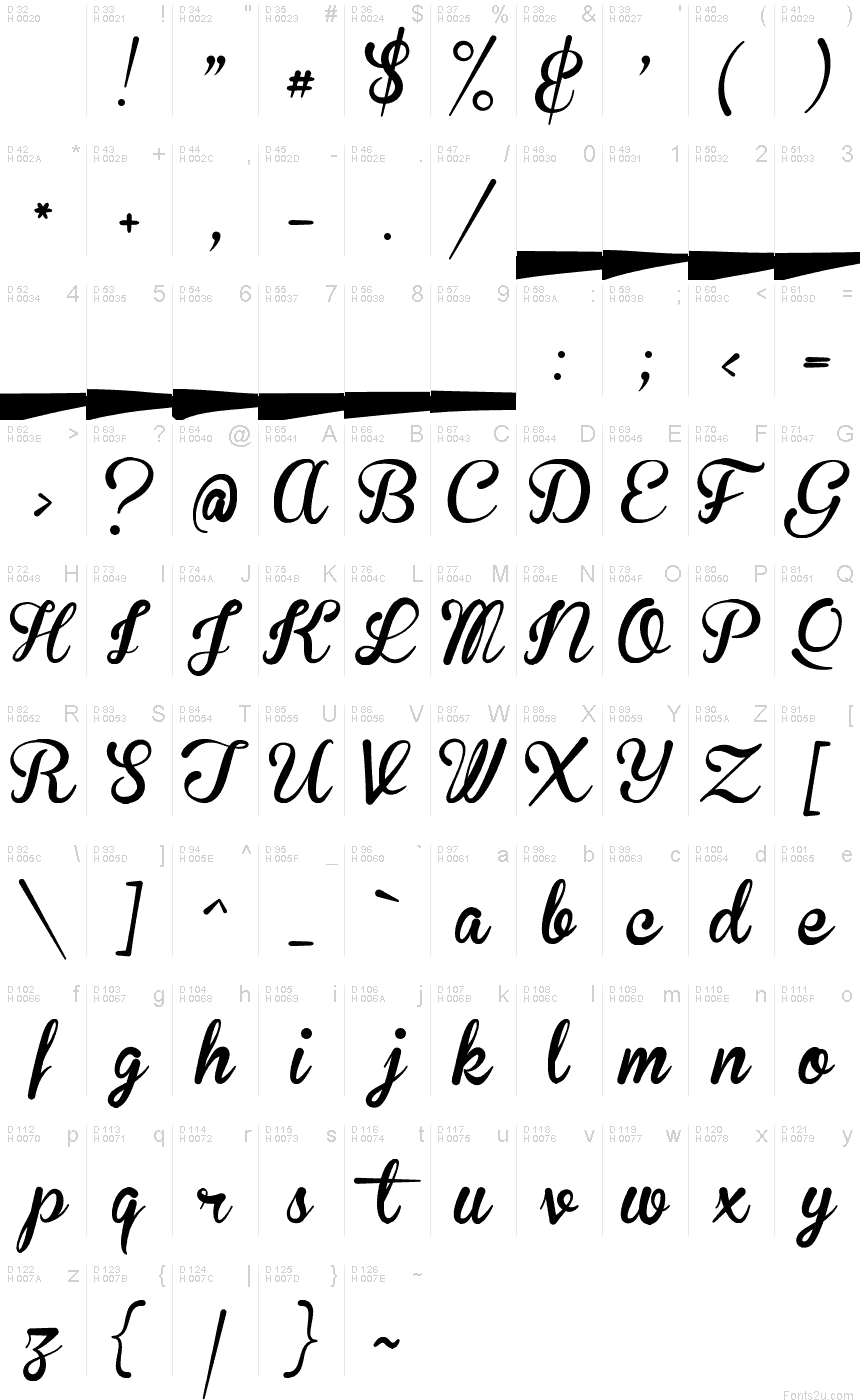 D 32 H 0020 D 33 H 0021 ! D 34 H 0022 " D 35 H 0023 # D 36 H 0024 $ D 37 H 0025 % D 38 H 0026 & D 39 H 0027 ' D 40 H 0028 ( D 41 H 0029 )
! " # $ % & ' ( )
D 42 H 002A * D 43 H 002B + D 44 H 002C , D 45 H 002D - D 46 H 002E . D 47 H 002F / D 48 H 0030 0 D 49 H 0031 1 D 50 H 0032 2 D 51 H 0033 3
* + , - . /
D 52 H 0034 4 D 53 H 0035 5 D 54 H 0036 6 D 55 H 0037 7 D 56 H 0038 8 D 57 H 0039 9 D 58 H 003A : D 59 H 003B ; D 60 H 003C < D 61 H 003D =
: ; < =
D 62 H 003E > D 63 H 003F ? D 64 H 0040 @ D 65 H 0041 A D 66 H 0042 B D 67 H 0043 C D 68 H 0044 D D 69 H 0045 E D 70 H 0046 F D 71 H 0047 G
> ? @ A B C D E F G
D 72 H 0048 H D 73 H 0049 I D 74 H 004A J D 75 H 004B K D 76 H 004C L D 77 H 004D M D 78 H 004E N D 79 H 004F O D 80 H 0050 P D 81 H 0051 Q
H I J K L M N O P Q
D 82 H 0052 R D 83 H 0053 S D 84 H 0054 T D 85 H 0055 U D 86 H 0056 V D 87 H 0057 W D 88 H 0058 X D 89 H 0059 Y D 90 H 005A Z D 91 H 005B [
R S T U V W X Y Z [
D 92 H 005C \ D 93 H 005D ] D 94 H 005E ^ D 95 H 005F _ D 96 H 0060 ` D 97 H 0061 a D 98 H 0062 b D 99 H 0063 c D 100 H 0064 d D 101 H 0065 e
\ ] ^ _ ` a b c d e
D 102 H 0066 f D 103 H 0067 g D 104 H 0068 h D 105 H 0069 i D 106 H 006A j D 107 H 006B k D 108 H 006C l D 109 H 006D m D 110 H 006E n D 111 H 006F o
f g h i j k l m n o
D 112 H 0070 p D 113 H 0071 q D 114 H 0072 r D 115 H 0073 s D 116 H 0074 t D 117 H 0075 u D 118 H 0076 v D 119 H 0077 w D 120 H 0078 x D 121 H 0079 y
p q r s t u v w x y
D 122 H 007A z D 123 H 007B { D 124 H 007C | D 125 H 007D } D 126 H 007E ~
z { | } ~
Fonts2u.com